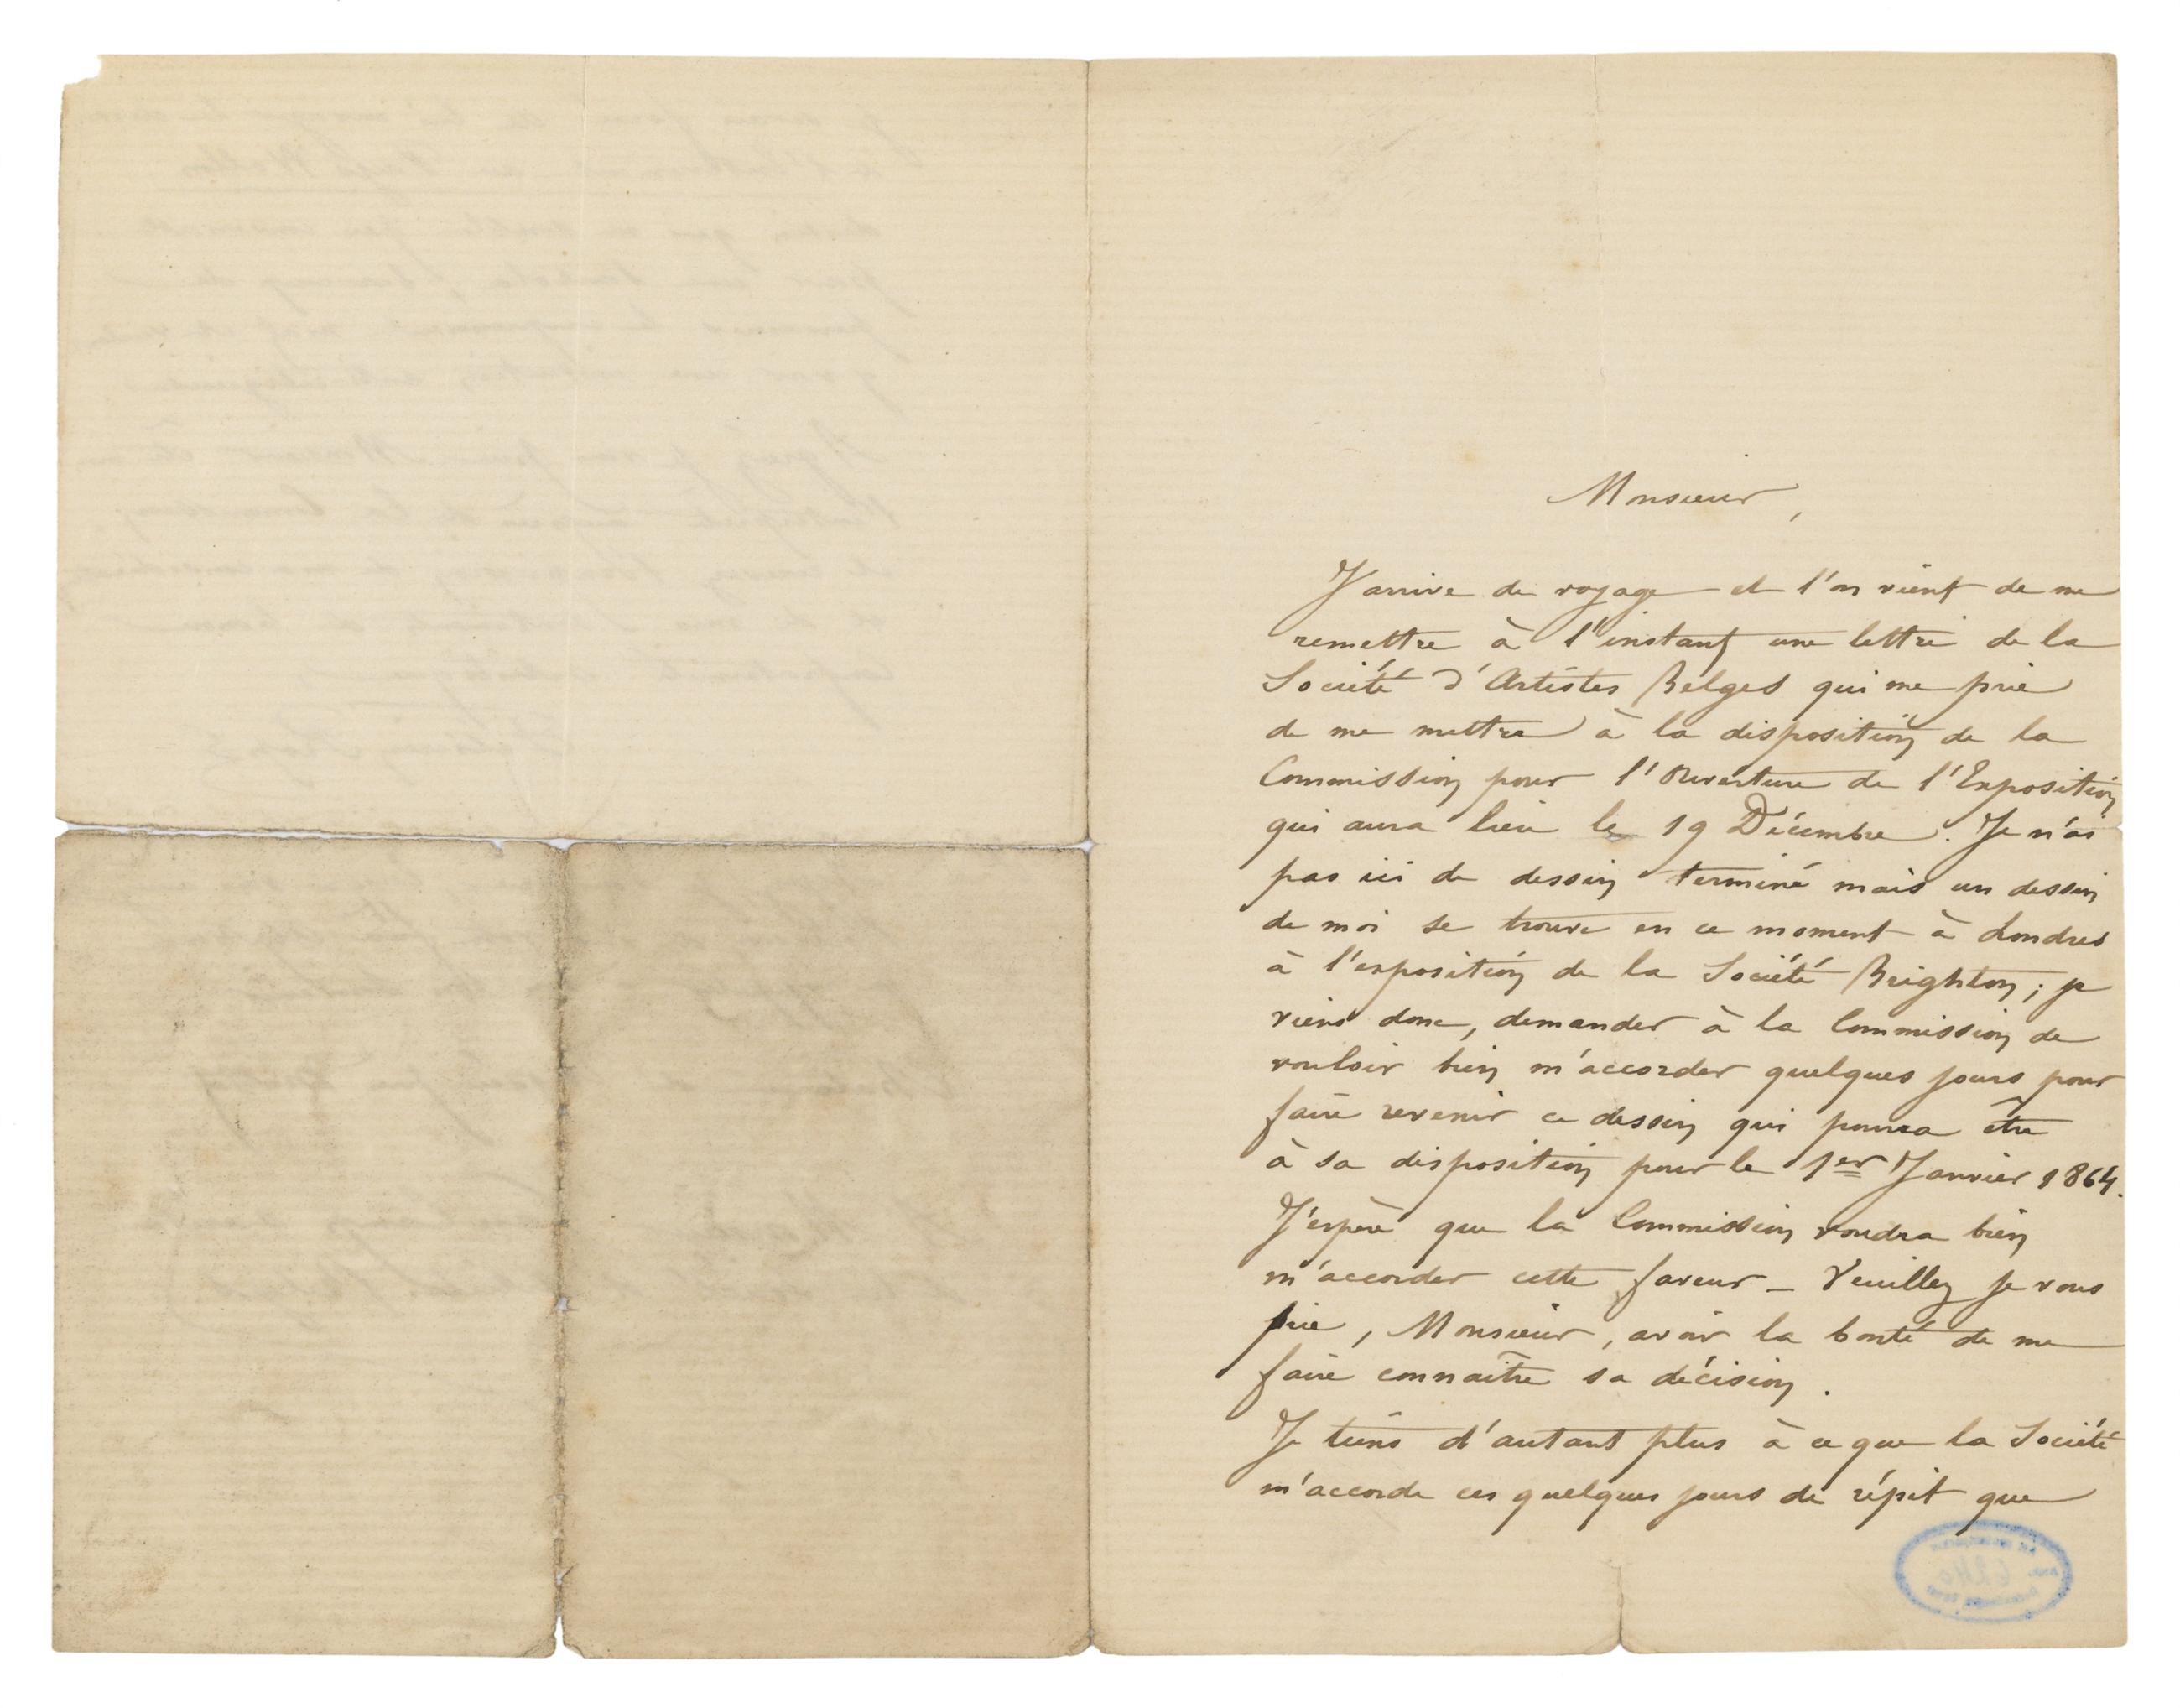 Monsieur,
J'arrive de voyage et l'on vient de me
remettre à l'instant une lettre de la
Société d'Artistes Belges qui me prie
de me mettre à la disposition de la
Commission pour l'Ouverture de l'Exposition
qui aura lieu le 19 Décembre. Je n'ai
pas ici de dessin terminé mais un dessin
de moi se trouve en ce moment à Londres
à l'exposition de la Société Brighton; je
viens donc, demander à la Commission de
vouloir bien m'accorder quelques jours pour
faire revenir ce dessin qui pourra être
à sa disposition pour le 1er Janvier 1864.
J'espère que la Commission voudra bien
m'accorder cette faveur - Veuillez je vous
prie, Monsieur, avoir la bonté de me
faire connaître sa décision.
Je tiens d'autant plus à ce que la Société
m'accorde ces quelques jours de répit que